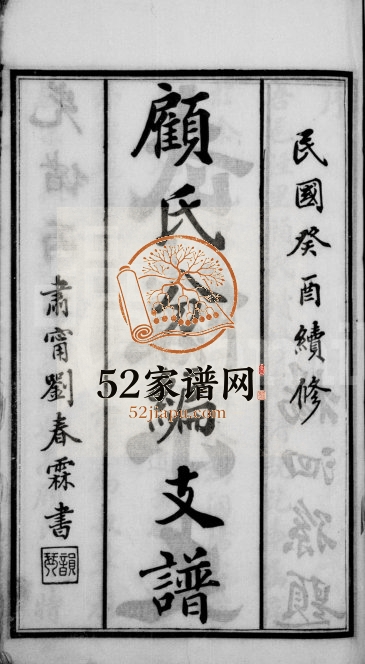 民國癸酉續修
顧氏分編支譜
肅甯劉春霖書
52家谱网
52jiapu.com